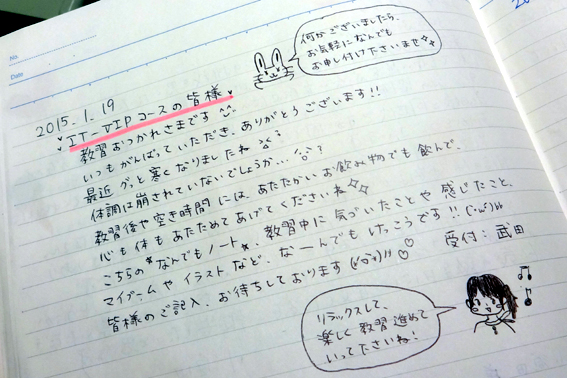 何かございましたら、
お気軽になんでも
お申し付け下さいませ✧
2015.1.19
IT-VIPコースの皆様♥
教習おつかれさまです
いつもがんばっていただき、ありがとうございます!!
最近 グッと寒くなりましたね
体調は崩されていないでしょうか…
教習後や空き時間には、あたたかいお飲み物でも飲んで、
心も体もあたためてあげてくださいね✧✧
こちらの★なんでもノート★、教習中に気づいたことや感じたこと、
マイブームやイラストなど、なーんでもけっこうです!!
皆様のご記入、お待ちしております ♡
受付:武田
リラックスして、
楽しく教習進めて
いって下さいね!
No.
Date